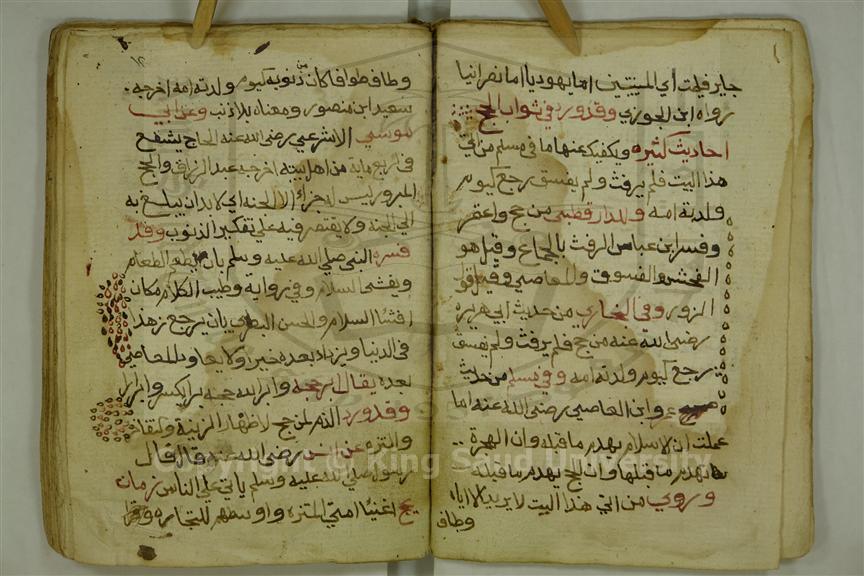 جاير فليمت أي الميتتين اما يهوديا اما نصرانيا
رواه ابن الجوزي وقد ورد في ثواب الحج
احاديث كثيره ويكفيك عنها ما في مسلم من اتي
هذا البيت فلم يرفث ولم يفسق رجع كيوم
ولدته امه وللدارقطني من حج واعتمر
وفسر ابن عباس الرفث بالجماع وقيل هو
الفحش والفسوق والمعاصي وقيل قول
الزور وفي البخاري من حديث ابي هريرة
رضي الله عنه من حج فلم يرفث ولم يفسق
يرجع كيوم ولدته امه وفي مسلم من حديث
عمرو ابن العاصي رضي الله عنه اما
عملت ان الاسلام يهدم ما قبله وان الهجرة
تهدم ما قبلها وان الحج يهدم ما قبله
وروي من اتي هذا البيت لا يريد الا اياه
وطاف
١٢
وطاف طوافا كان من ذنوبه كيوم ولدته امه اخرجه
سعيد ابن منصور ومعناه بلا ذنب وعن ابي
موسي الاشرعي رضي الله عنه الحاج يشفع
في اربع ماية من اهل بيته اخرجه عبد الرزاق والحج
المبرور ليس له جزاء الا الجنه اي لا بد ان يبلغ به
الي الجنه ولا يقتصر فيه علي تكفير الذنوب وقد
فسره النبي صلي الله عليه وسلم بان يطعم الطعام
ويفشي السلام وفي رواية وطيب الكلام مكان
افشا السلام والحسن البصري بان يرجع زهدا
في الدنيا ويزداد بعده خيرا ولا يعاود المعاصي
بعده يقال بر حجه وابر الله حجه برا بكسر وابرارا
وقد ورد الذم لمن حج لاظهار الزينة والتفاخر
والنتزه عن انس رضي الله عنه قال قال
رسول الله صلي الله عليه وسلم ياتي علي الناس زمان
يحج اغنيا امتي للنتزه واوسطهم للتجاره وقرا
Copyright © King Saud University